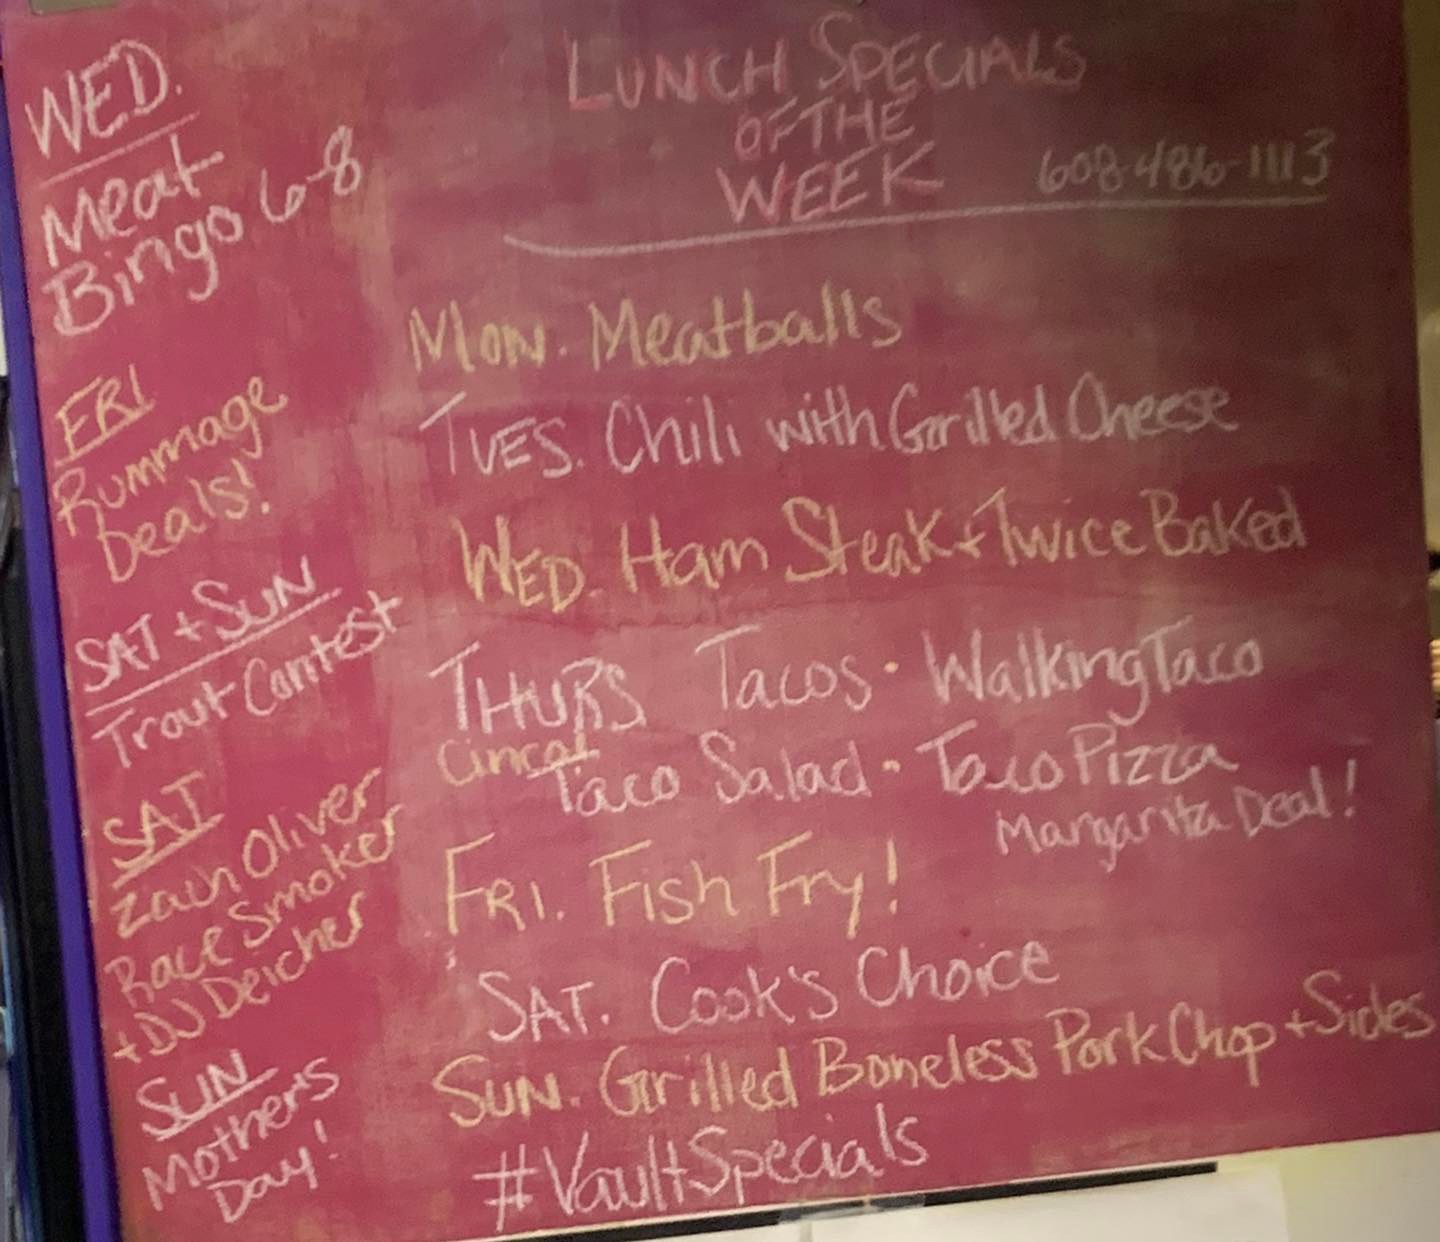 WED.
Meat
Bingo 6-8
FRI
Rummage
Deals!
SAT + SUN
Trout Contest
SAT
Zach Oliver
Race Smoker
+ DJ Deicher
SUN
Mother's
Day!
LUNCH SPECIALS
OF THE
WEEK
608-486-1113
MON. Meatballs
TUES. Chili with Grilled Cheese
WED. Ham Steak + Twice Baked
THURS Tacos · Walking Taco
Cinco!
Taco Salad · Taco Pizza
Margarita Deal!
FRI. Fish Fry!
SAT. Cook's Choice
SUN. Grilled Boneless Pork Chop + Sides
#VaultSpecials